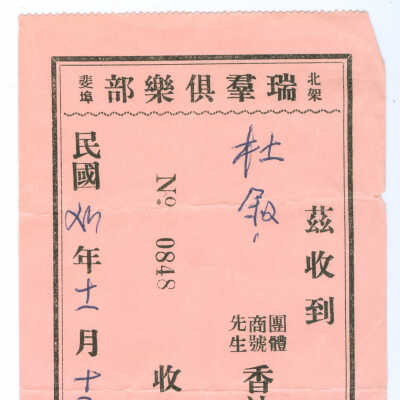 北架 瑞羣俱樂部 斐埠
茲收到
杜
團體
商號
先生
香
No. 0848
收
民國 年十二月十